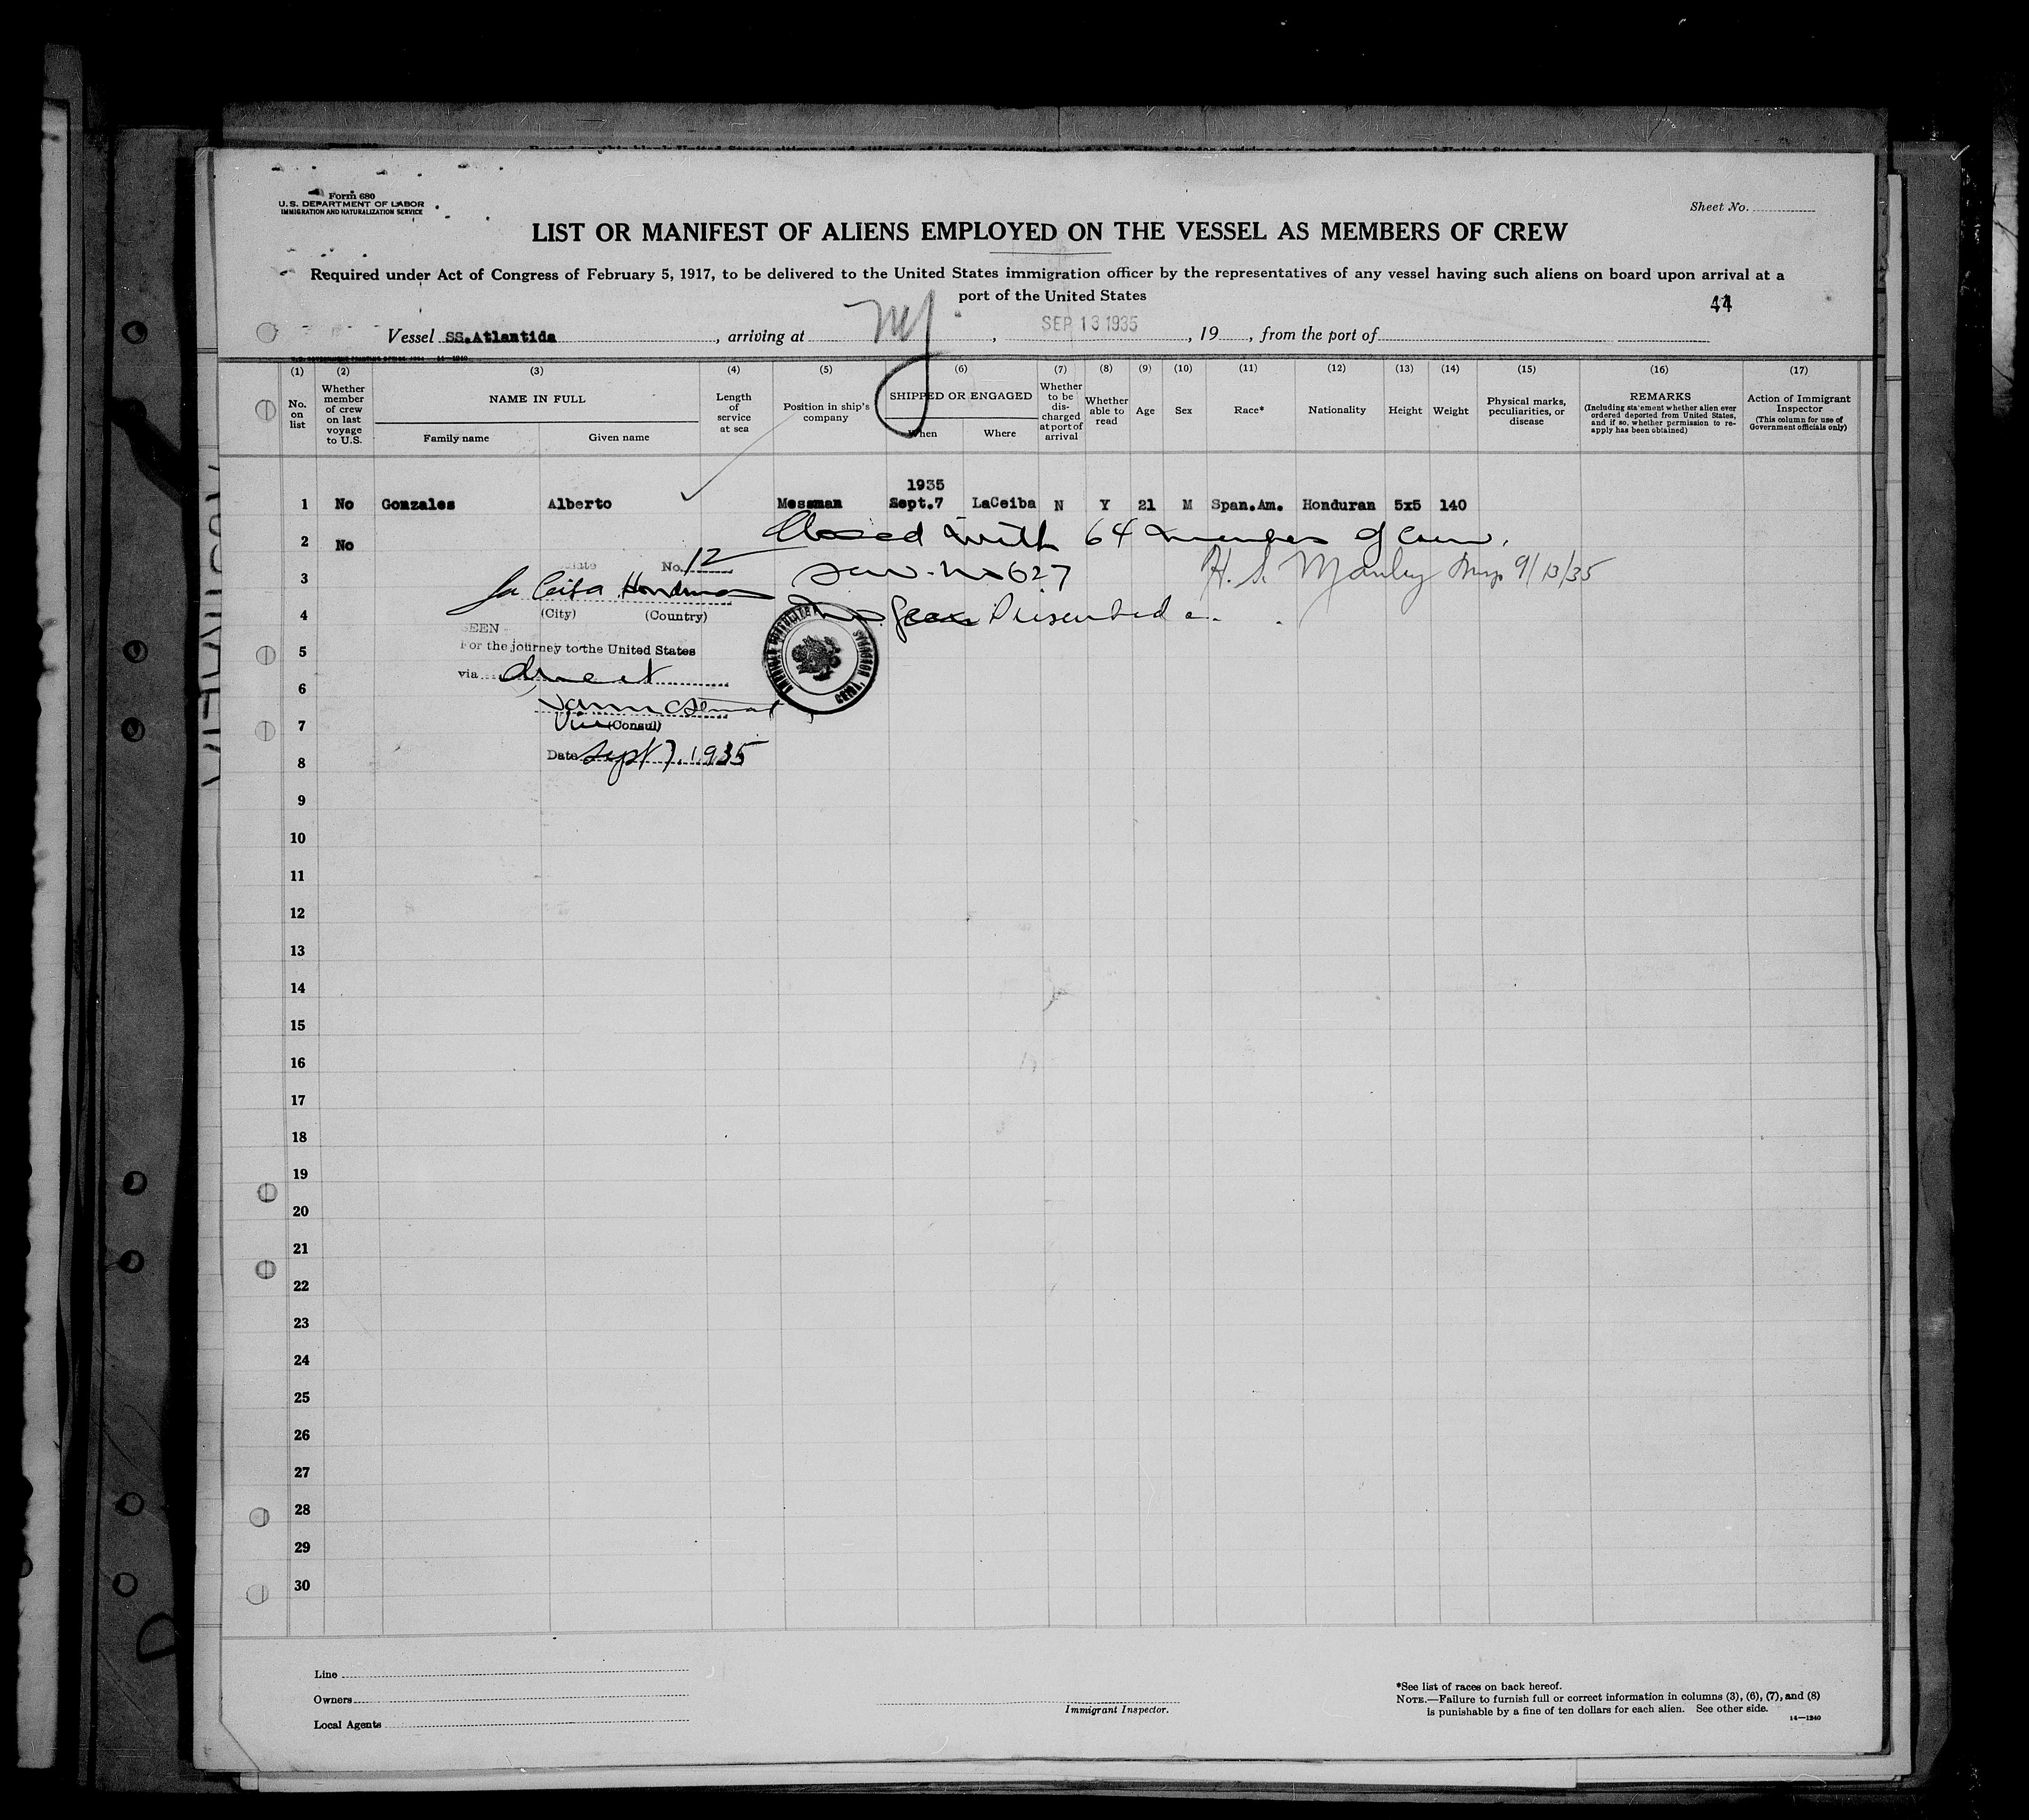 Form 680
U.S. DEPARTMENT OF LABOR
IMMIGRATION AND NATURALIZATION SERVICE
Sheet No.
LIST OR MANIFEST OF ALIENS EMPLOYED ON THE VESSEL AS MEMBERS OF CREW
Required under Act of Congress of February 5, 1917, to be delivered to the United States immigration officer by the representatives of any vessel having such aliens on board upon arrival at a
port of the United States
44
Vessel SS.Atlantida, arriving at NY, SEP 13 1935, 19, from the port of
(1) (2) (3) (4) (5) (6) (7) (8) (9) (10) (11) (12) (13) (14) (15) (16) (17)
No. on list
Whether member of crew on last voyage to U.S.
NAME IN FULL
Family name
Given name
Length of service at sea
Position in ship's company
SHIPPED OR ENGAGED
When
Where
Whether to be discharged at port of arrival
Whether able to read
Age
Sex
Race*
Nationality
Height
Weight
Physical marks, peculiarities, or disease
REMARKS
(Including statement whether alien ever ordered deported from United States, and if so, whether permission to reapply has been obtained)
Action of Immigrant Inspector
(This column for use of Government officials only)
1935
1 No Gonzales Alberto Messman Sept.7 LaCeiba N Y 21 M Span.Am. Honduran 5x5 140
Closed with 64 members of crew.
2 No
No. 12
3
H. S. Manley Insp 9/13/35
La Ceiba Honduras
4
(City) (Country)
SEEN
5
For the journey to the United States
via direct
6
7
Vice (Consul)
Date Sept 7, 1935
8
9
10
11
12
13
14
15
16
17
18
19
20
21
22
23
24
25
26
27
28
29
30
Line
Owners
Local Agents
Immigrant Inspector.
*See list of races on back hereof.
NOTE.—Failure to furnish full or correct information in columns (3), (6), (7), and (8)
is punishable by a fine of ten dollars for each alien. See other side.
14—1240